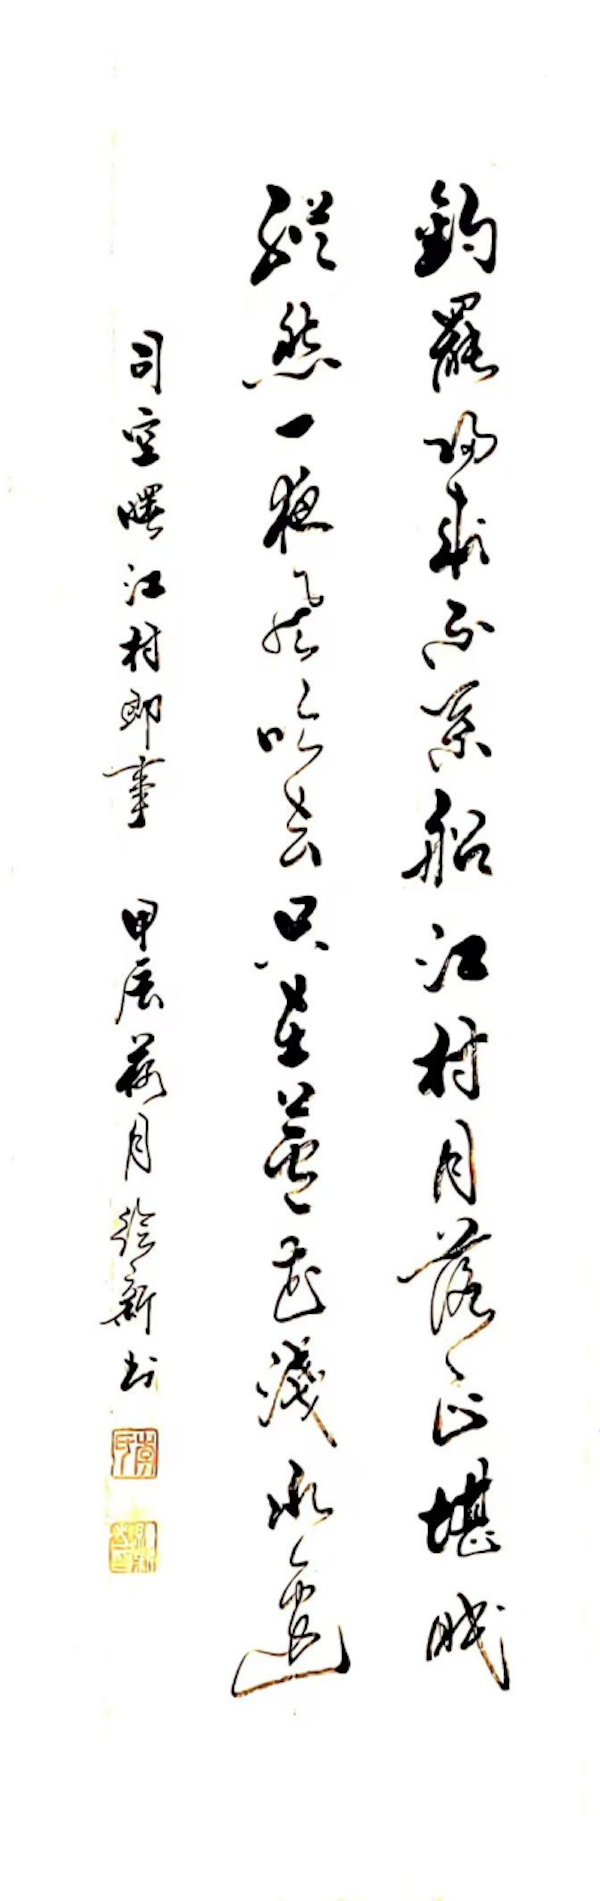 釣罷歸來不系船江村月落正堪眠
縱然一夜風吹去只在蘆花淺水邊
司空曙江村即事 甲辰月繪新書